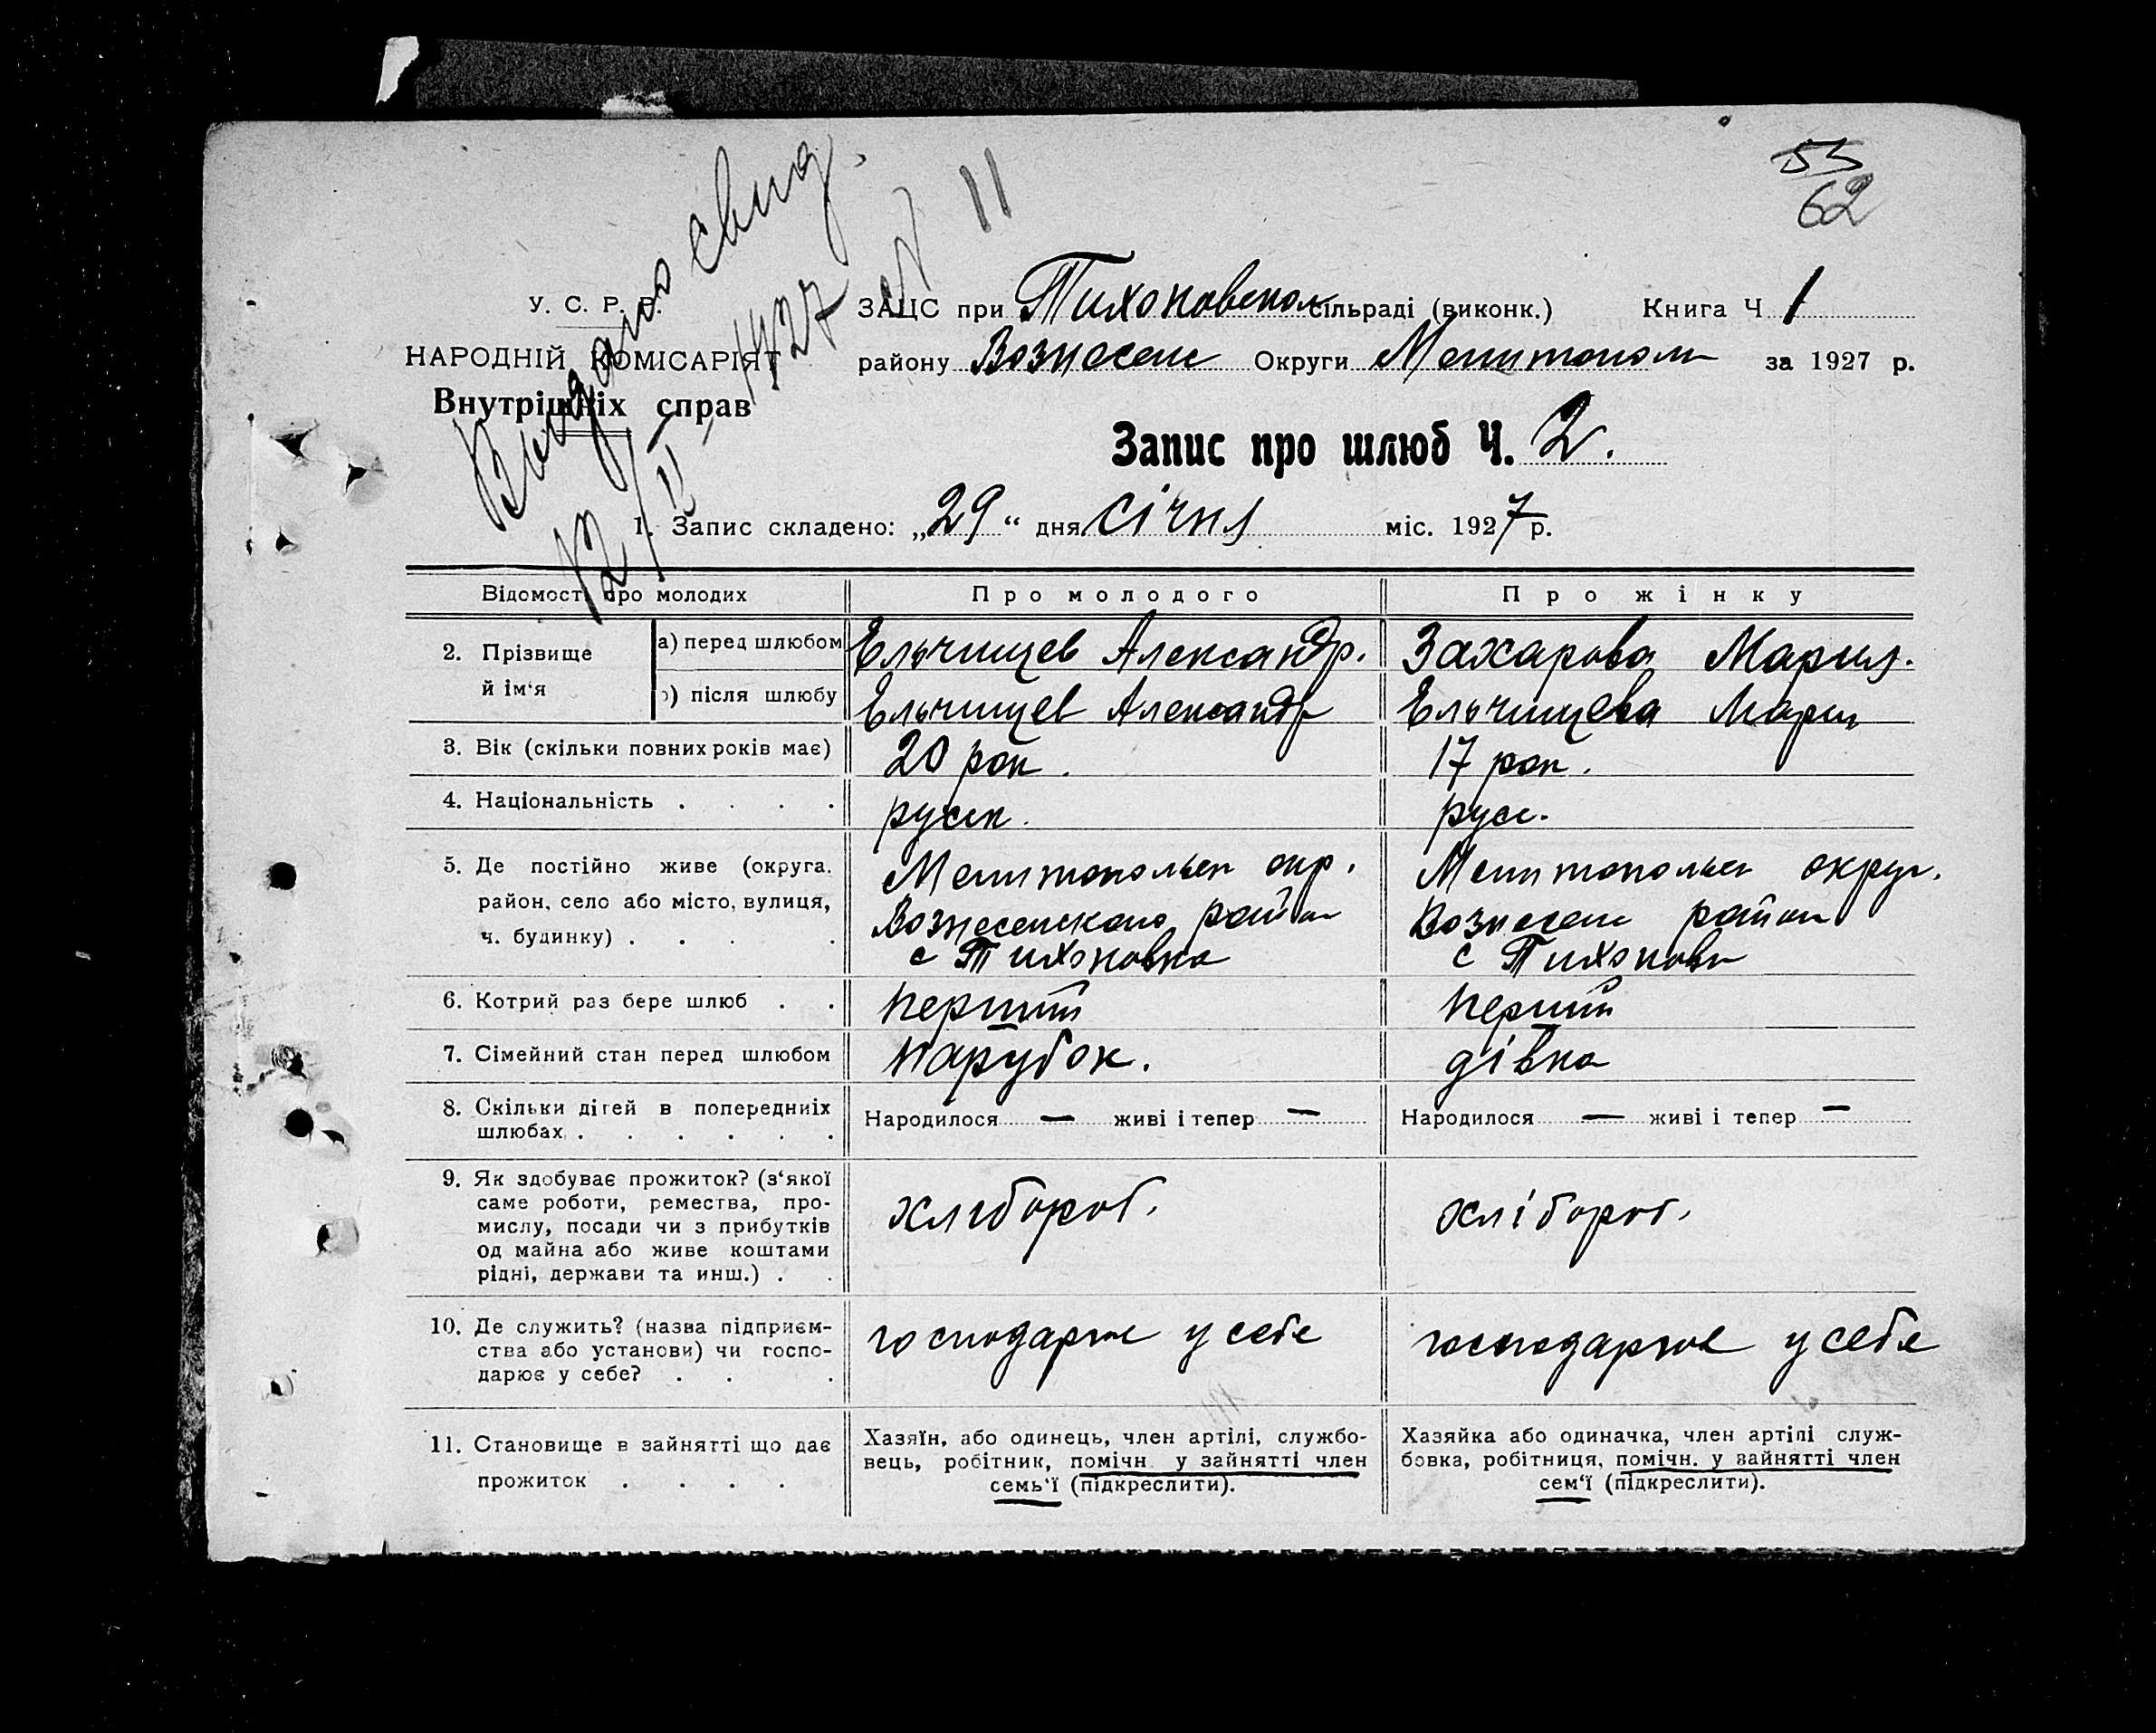 55
62
Видано свид.
12/II-1927 № 11
У. С. Р. Р.
НАРОДНІЙ КОМІСАРІЯТ
Внутрішніх справ
ЗАЦС при Тихоновском сільраді (виконк.) Книга Ч 1
району Вознесенс Округи Мелитополь за 1927 р.
Запис про шлюб Ч. 2.
1. Запис складено: „29“ дня січня міс. 1927 р.
Відомості про молодих
Про молодого
Про жінку
2. Прізвище й ім‘я
а) перед шлюбом
Ельчищев Александр.
Захарова Мария.
б) після шлюбу
Ельчищев Александр
Ельчищева Мария
3. Вік (скільки повних років має)
20 рок.
17 рок.
4. Національність . . . .
руск.
русс.
5. Де постійно живе (округа.
район, село або місто, вулиця,
ч. будинку) . . . .
Мелитопольск окр.
Вознесенского район
с Тихоновка
Мелитопольск округ.
Вознесенс район
с Тихоновк
6. Котрий раз бере шлюб . .
перший
перший
7. Сімейний стан перед шлюбом
парубок.
дівка
8. Скільки дітей в попередніх
шлюбах . . . . . .
Народилося — живі і тепер —
Народилося — живі і тепер —
9. Як здобуває прожиток? (з‘якої
саме роботи, ремества, про-
мислу, посади чи з прибутків
од майна або живе коштами
рідні, держави та инш.) . .
хлибороб.
хлібороб.
10. Де служить? (назва підприєм-
ства або установи) чи госпо-
дарює у себе? . . .
господарює у себе
господарює у себе
11. Становище в зайнятті що дає
прожиток . . . .
Хазяїн, або одинець, член артілі, службо-
вець, робітник, помічн. у зайнятті член
семь‘ї (підкреслити).
Хазяйка або одиначка, член артілі служ-
бовка, робітниця, помічн. у зайнятті член
сем‘ї (підкреслити).